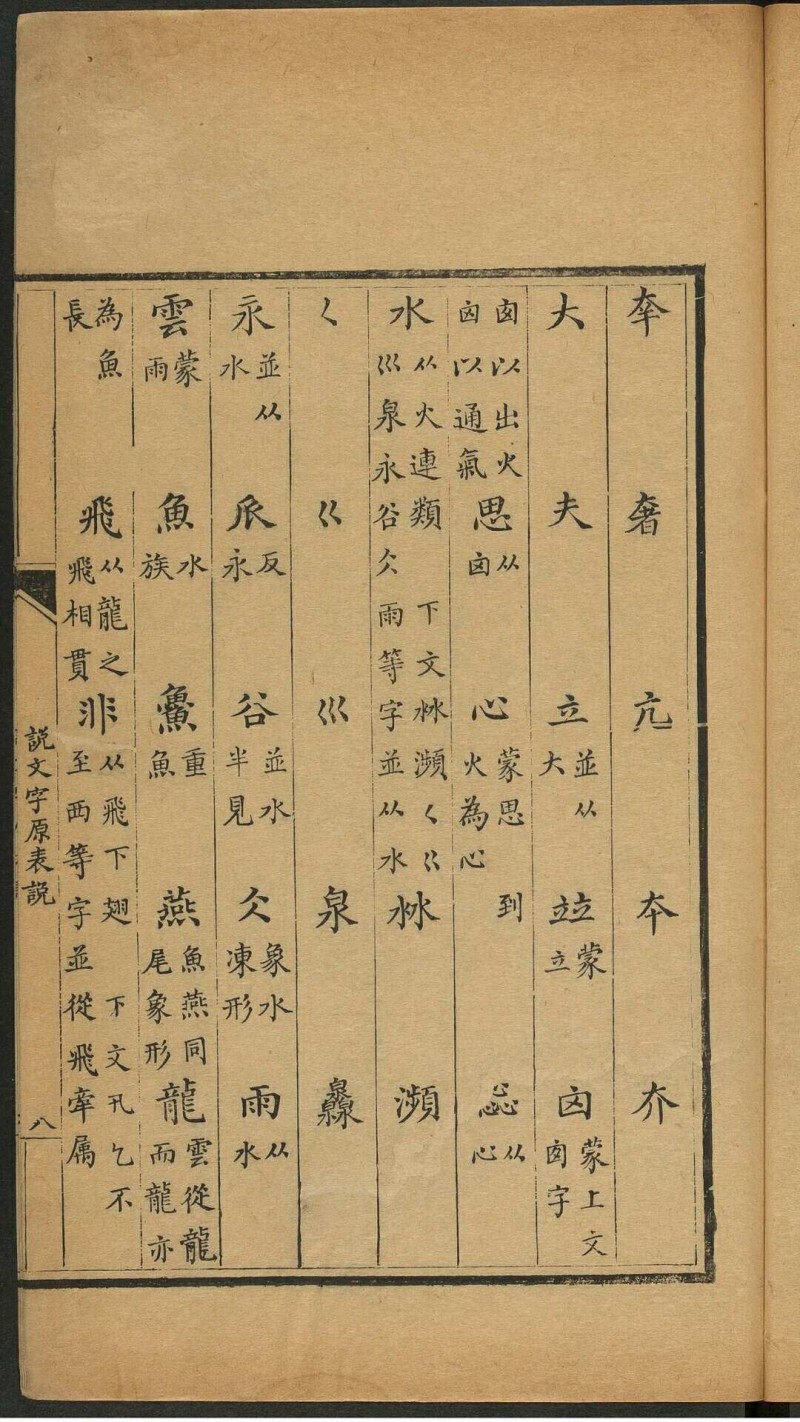 㚔 奢 亢 夲 夰
大 夫 立 並从大 竝 蒙立 囟 蒙上文囱字
囱以出火囟以通氣 思 从囟 心 蒙思到火為心 惢 从心
水 从火連類 下文沝瀕く巜巛泉永谷仌雨等字並从水 沝 瀕
く 巜 巛 泉 灥
永 並从水 𠂢 反永 谷 並水半見 仌 象水凍形 雨 从水
雲 蒙雨 魚 水族 䲆 重魚 燕 魚燕同尾象形 龍 雲從龍而龍亦
為魚長 飛 从龍之飛相貫 非 从飛下翅 下文卂乞不至西等字並從飛牽属
説文字原表説 八